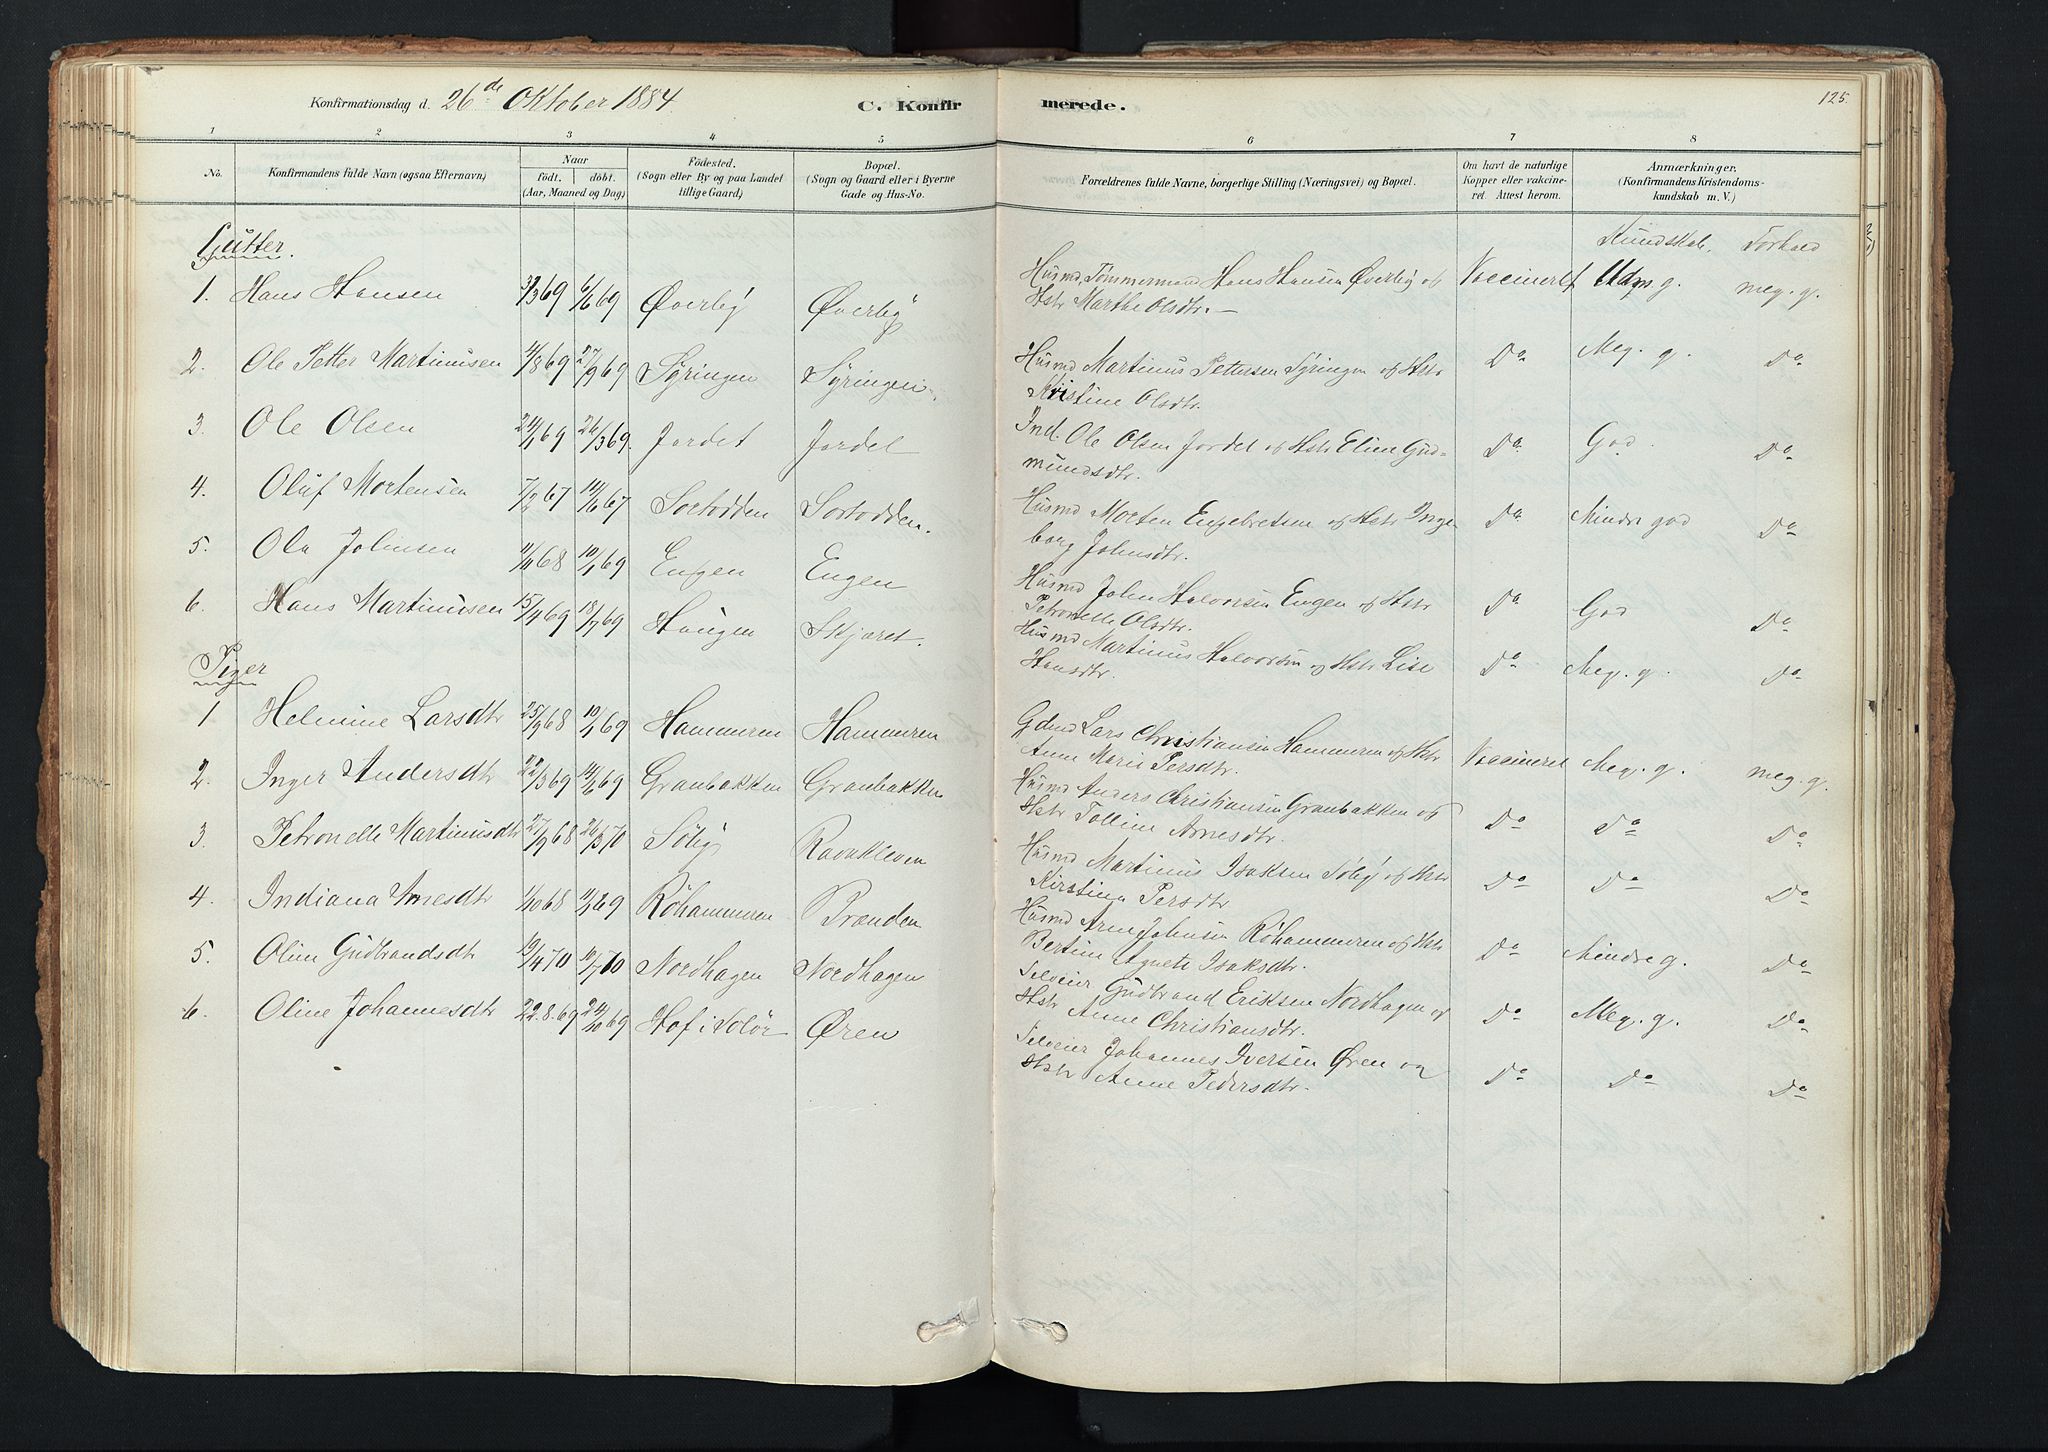 Konfirmationsdag d. 26de Oktober 1884. C. Konfir merede. 125.
1 2 3 4 5 6 7 8
No. Konfirmandens fulde Navn (ogsaa Efternavn) Naar født. døbt. (Aar, Maaned og Dag) Födested. (Sogn eller By og paa Landet tillige Gaard) Bopæl. (Sogn og Gaard eller i Byerne Gade og Hus-No. Forældrenes fulde Navne, borgerlige Stilling (Næringsvei) og Bopæl. Om havt de naturlige Kopper eller vakcineret. Attest herom. Anmærkninger. (Konfirmandens Kristendomskundskab m. V.)
Kundskab. Forhold
Gutter.
1. Hans Hansen 3/3 69 6/6 69 Øverby Øverby Husmd, Tømmermand Hans Hansen Øverby og Vaccineret Udm. g. meg. g.
Hstr Marthe Olsdtr. —
2. Ole Petter Martinusen 4/8 69 27/9 69 Syringen Syringen Husmd Martinus Pettersen Syringen og Hstr Do Meg. g. Do
Kristine Olsdtr.
3. Ole Olsen 24/1 69 26/3 69. Jordet Jordet Ind. Ole Olsen Jordet og Hstr Eline Gud- Do God. Do
mundsdtr.
4. Oluf Mortensen 7/2 67 67 Sortodden Sortodden. Husmd Morten Engebretsen og Hstr Inge Do Mindre god Do
borg Johnsdtr.
5. Ole Johnsen 68 10/1 69 Engen Engen Husmd John Halvorsen Engen og Hstr Do God Do
Petronelle Olsdtr.
6. Hans Martinusen 15/4 69 18/7 69 Haugen Skjæret. Husmd Martinus Halvorsen og Hstr Lise Do Meg. g. Do
Hansdtr.
Piger
1 Helmine Larsdtr 25/9 68 10/1 69 Hammeren Hammeren Gdmd Lars Christiansen Hammeren og Hstr Vaccineret Meg. g. meg. g.
Anne Marie Persdtr.
2. Inger Andersdtr 22/3 69 14/6 69 Granbakken Granbakken Husmd Anders Christiansen Granbakken og Do Do Do
Hstr Tolline Arnesdtr.
3. Petronelle Martinusdtr 27/9 68 26/3 70 Søby Ravnkleven Husmd Martinus Isaksen Søby og Hstr Do Do Do
Kirstine Persdtr
4. Indiana Arnesdtr 1/10 68 69 Røhammeren Brænden Husmd Arne Johnsen Røhammeren og Hstr Do Mindre g. Do
Bertine Agnete Isaksdtr.
5. Oline Gudbrandsdtr 19/4 70 10/7 70 Nordhagen Nordhagen Selveier Gudbrand Eriksen Nordhagen og Do Meg. g. Do
Hstr Anne Christiansdtr.
6. Oline Johannesdtr 22.8.69 24/10 69 Hof i Solør Øren Selveier Johannes Iversen Øren og Do Do Do
Hstr Anne Pedersdtr.